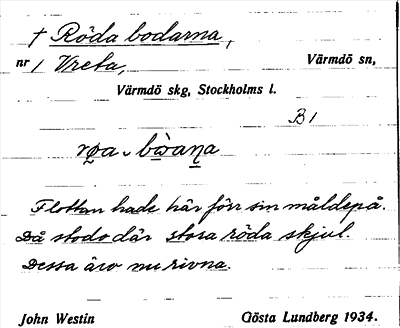 † Röda bodarna,
nr 1 Vreta, Värmdö sn,
Värmdö skg, Stockholms l.
B1
Flottan hade här förr sin måldepå.
Då stodo där stora röda skjul.
Dessa äro nu rivna.
John Westin Gösta Lundberg 1934.